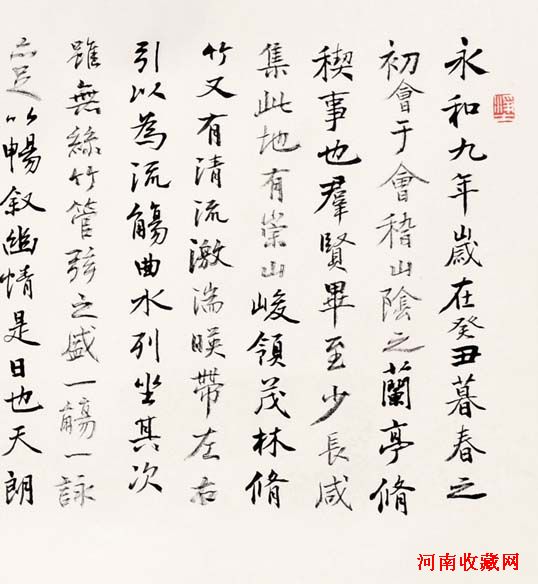 永和九年歲在癸丑暮春之
初會于會稽山陰之蘭亭脩
稧事也羣賢畢至少長咸
集此地有崇山峻領茂林脩
竹又有清流激湍暎帶左右
引以為流觴曲水列坐其次
雖無絲竹管弦之盛一觴一詠
亦足以暢叙幽情是日也天朗
河南收藏网